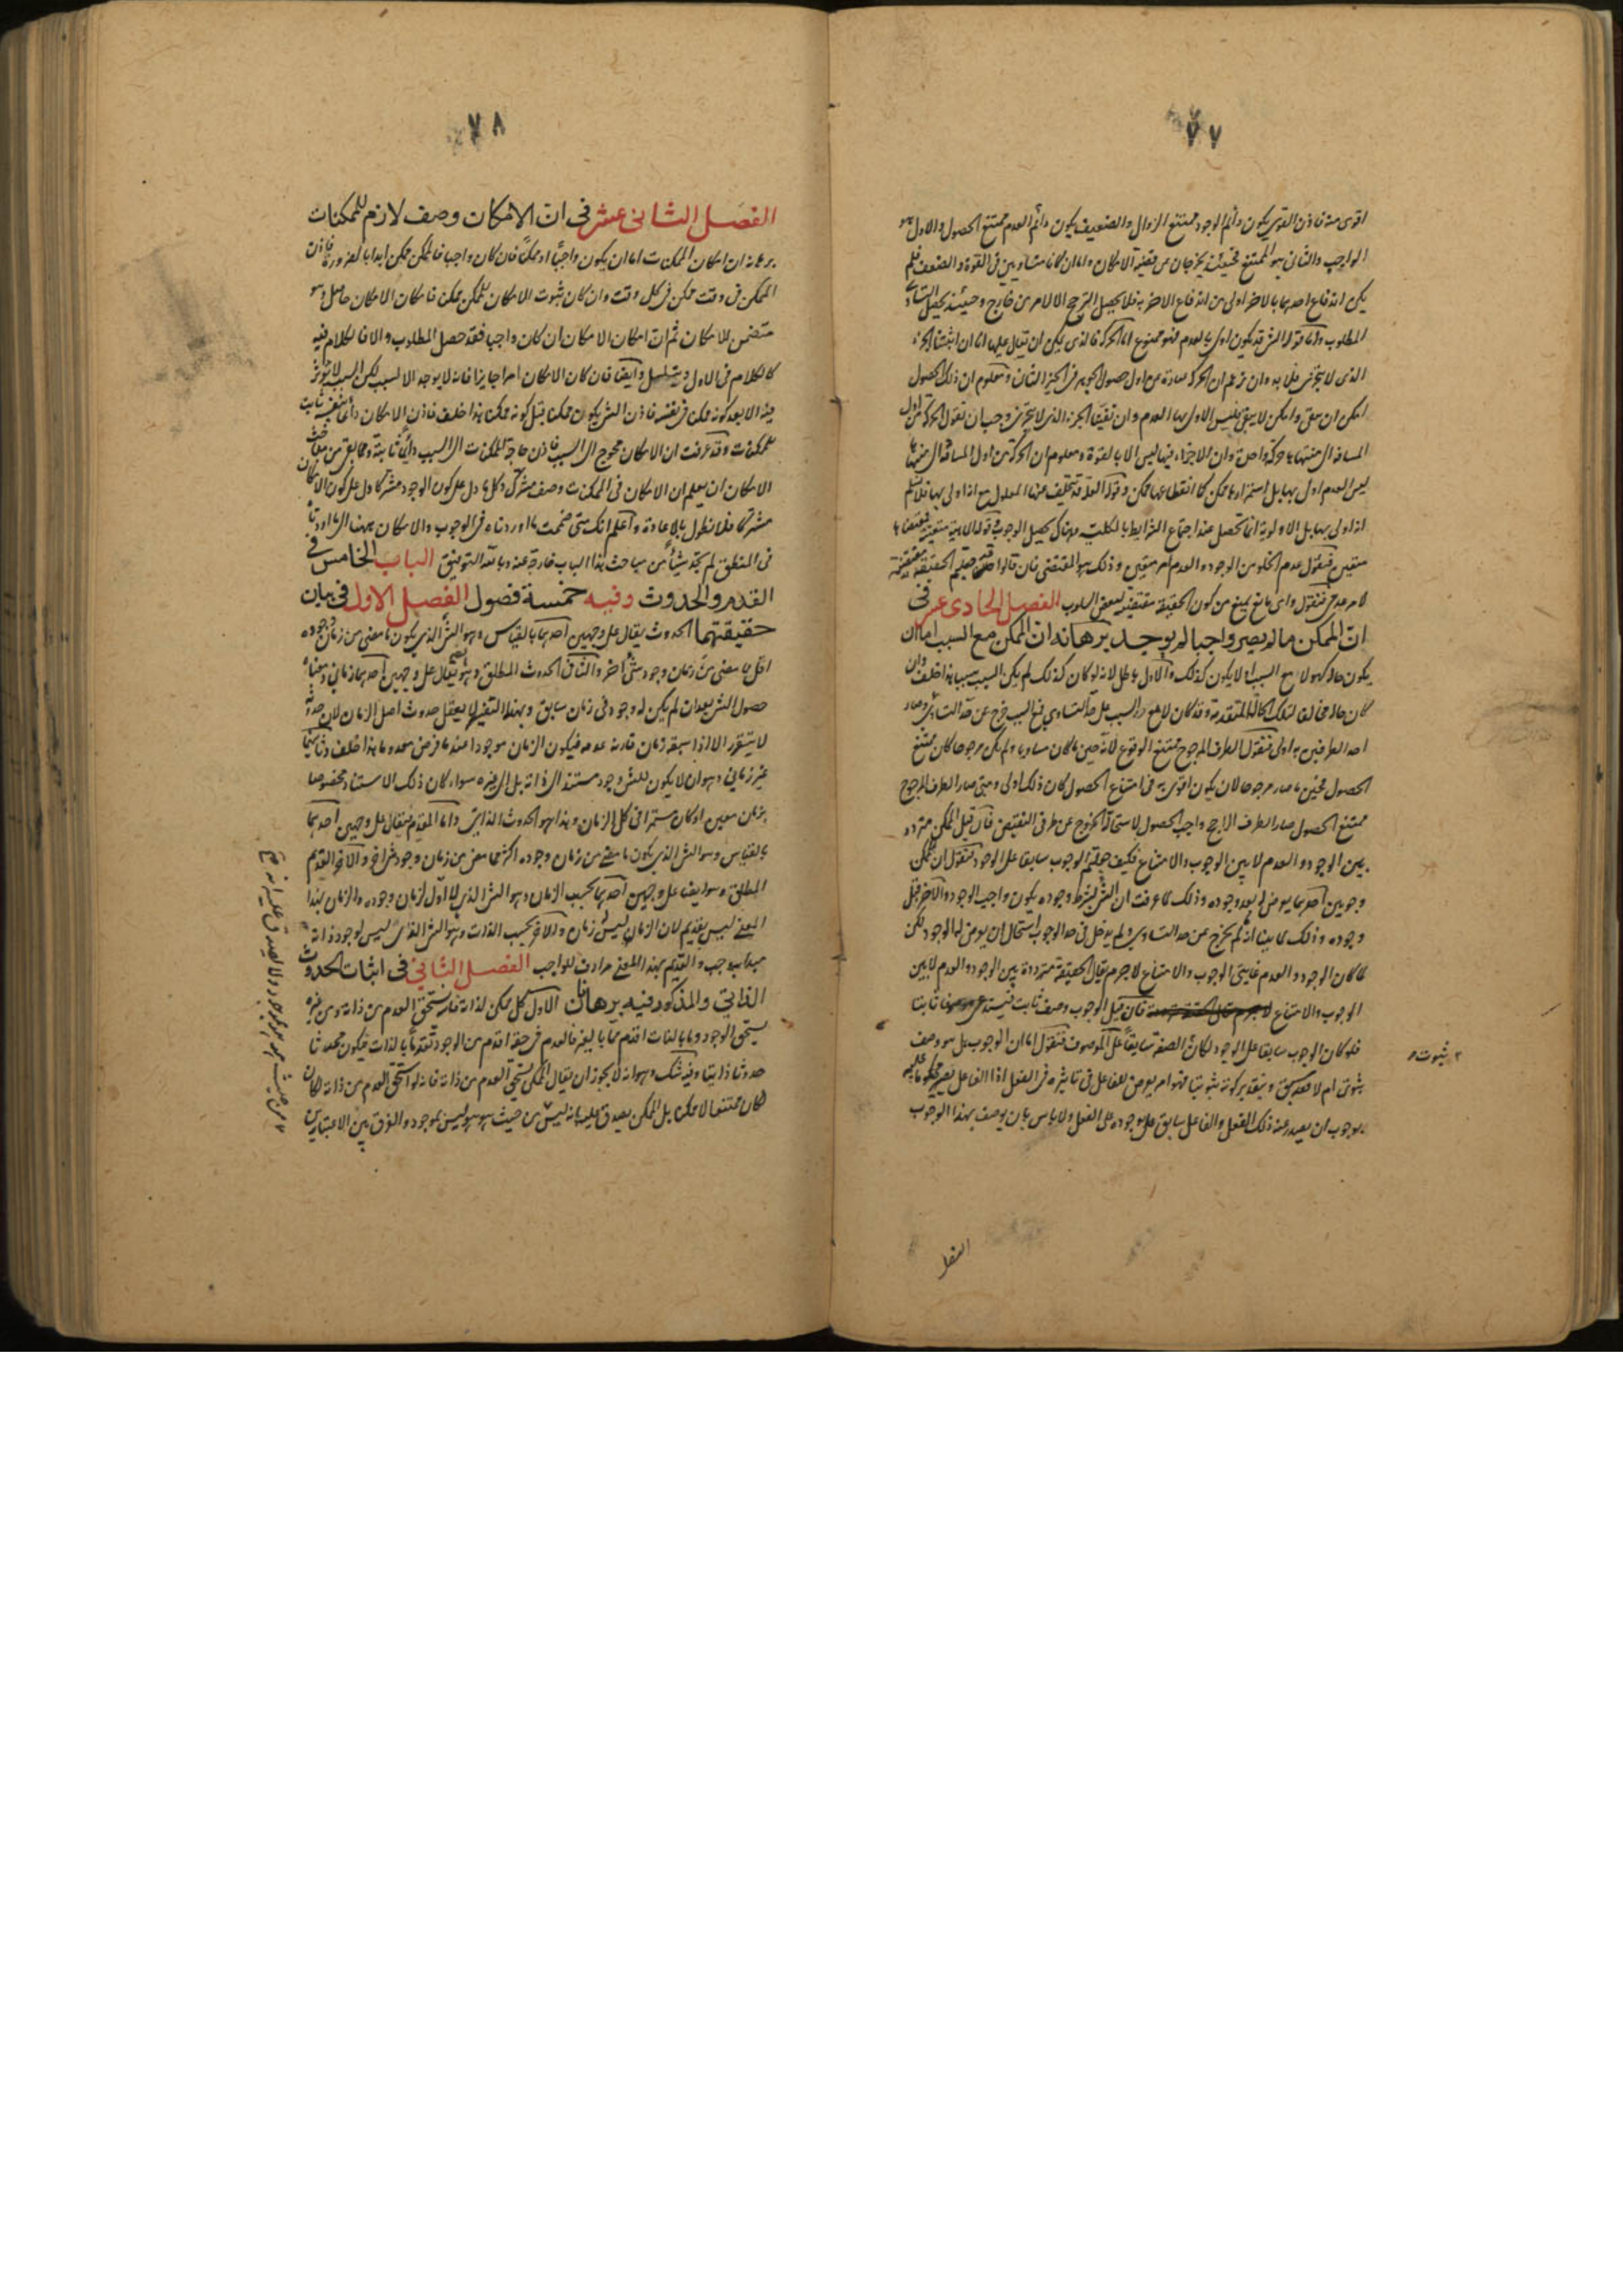 ٧٧
اقوى منه فاذن القوي يكون دائم الوجود ممتنع الزوال والضعيف يكون دائم العدم ممتنع الحصول والاول هو
الواجب والثاني هو الممتنع فحينئذ يخرجان عن قضية الامكان واما ان كانا متساويين في القوة والضعف فلم
يكن اندفاع احدهما بالاخر اولى من اندفاع الاخر به فلا يحصل الترجح الا لامر من خارج وحينئذ يحصل
المطلوب واما قوله الشئ قد يكون اولى بالعدم فهو ممنوع اما الحركة فالذي يمكن ان يقال عليها اما ان
الذي لا يتجزى فلا بد وان نزعم ان الحركة عبارة عن اول حصول الجوهر في الحيز الثاني ومعلوم ان ذلك الحصول
وان نفينا الجزء الذي لا يتجزى وجب ان نقول الحركة من اول
المسافة الى منتهاها حركة واحدة وان الاجزاء فيها ليس الا بالقوة ومعلوم ان الحركة من اول المسافة الى منتهاها
ليس العدم اولى بها بل استمرارها ممكن كما انقطاعها ممكن وقوله العلة قد يتخلف عنها المعلول مع انه اولى بها فلا نسلم
انه اولى بها بل الاولوية انما تحصل عند اجتماع الشرايط بالكلية وهناك يحصل الوجوب قوله الماهية متعينة
متعين فنقول عدم الخلو من الوجود والعدم امر متعين وذلك هو المقتضى فان قالوا
لامر عدمي فنقول واي مانع يمنع من كون الحقيقة مقتضية لبعض السلوب الفصل الحادي عشر في
ان الممكن ما لم يصر واجبا لم يوجد برهانه ان الممكن مع السبب اما ان
يكون حاله كهو لا مع السبب او لا يكون كذلك والاول باطل لانه لو كان كذلك لم يكن السبب سببا هذا خلف وان
كان حاله مخالفا لتلك الحالة المتقدمة وقد كان لا مع السبب على حد التساوي فمع السبب خرج عن حد التساوي وصار
احد الطرفين به اولى فنقول الطرف المرجوح ممتنع الوقوع لانه حين ما كان مساويا ولم يكن مرجوحا كان ممتنع
الحصول فحين ما صار مرجوحا لان يكون اقوى في امتناع الحصول كان ذلك اولى ومتى صار الطرف المرجوح
ممتنع الحصول صار الطرف الراجح واجب الحصول لاستحالة الخروج عن طرفي النقيض فان قيل الممكن متردد
بين الوجود والعدم لا بين الوجوب والامتناع فكيف جعلتم الوجوب سابقا على الوجود فنقول ان للممكن
وجوبين احدهما يعرض له بعد وجوده وذلك لما عرفت ان الشئ بشرط وجوده يكون واجب الوجود والاخر قبل
وجوده وذلك لما بينا انه لم يخرج عن حد التساوي ولم يدخل في حد الوجوب استحال ان يعرض له الوجود لكن
لما كان الوجود والعدم غايتي الوجوب والامتناع لا جرم يقال الحقيقة مترددة بين الوجود والعدم لا بين
الوجوب والامتناع فان قيل الوجوب وصف ثابت
فلو كان الوجوب سابقا على الوجود لكان الصفة سابقا على الموصوف فنقول اما ان الوجوب هل هو وصف
ثبوتي ام لا فقد سبق وبتقدير كونه ثبوتيا فهو امر يعرض للفاعل في تاثيره في الفعل اذ الفاعل يصير محكوما عليه
بوجوب ان يصدر عنه ذلك الفعل والفاعل سابق على وجوده على الفعل ولا باس بان يوصف بهذا الوجوب
ثبوت
٧٨
الفصل الثاني عشر في ان الامكان وصف لازم للممكنات
برهانه ان امكان الممكنات اما ان يكون واجبا او ممكنا فان كان واجبا فالممكن ممكن ابدا بالضرورة فاذن
الممكن في وقت ممكن في كل وقت وان كان ثبوت الامكان للممكن ممكن فامكان الامكان حاصل وهو
متضمن للامكان ثم ان امكان الامكان ان كان واجبا فقد حصل المطلوب والا فالكلام فيه
كالكلام في الاول ويتسلسل وايضا فان كان الامكان امرا جايزا فانه لا يوجد الا لسبب لكن السبب لا يؤثر
فيه الا بعد كونه ممكن في نفسه فاذن الشئ يكون ممكنا قبل كونه ممكنا هذا خلف فاذن الامكان دائما بنفسه ثابت
للممكنات وقد عرفت ان الامكان محوج الى السبب فاذن حاجة الممكنات الى السبب دائما ثابتة ومما بقي من مباحث
الامكان ان يعلم ان الامكان في الممكنات وصف مشترك وكل ما دل على كون الوجود مشتركا دل على كون الامكان
مشتركا فلا نطول بالاعادة واعلم انك متى ضممت ما اوردناه في الوجوب والامكان ههنا الى ما اوردناه
في المنطق لم تجد شيئا من مباحث هذا الباب خارجة عنه وبالله التوفيق الباب الخامس في
القدم والحدوث وفيه خمسة فصول الفصل الاول في بيان
حقيقتهما الحدوث يقال على وجهين احدهما بالقياس وهو الشئ الذي يكون ما مضى من زمان وجوده
اقل مما مضى من زمان وجود شئ اخر والثاني الحدوث المطلق وهو يقال على وجهين احدهما زماني ومعناه
حصول الشئ بعد ان لم يكن له وجود في زمان سابق وبهذا التفسير لا يعقل حدوث اصل الزمان لان حدوثه
لا يتقرر الا اذا سبقه زمان قارنه عدمه فيكون الزمان موجودا عند ما فرض معدوما هذا خلف وثانيهما
غير زماني وهو ان لا يكون للشئ وجود مستند الى ذاته بل الى غيره سواء كان ذلك الاستناد مخصوصا
بزمان معين او كان مستمرا في كل الزمان وهذا هو الحدوث الذاتي واما القديم فيقال على وجهين احدهما
بالقياس وهو الشئ الذي يكون ما مضى من زمان وجوده اكثر مما مضى من زمان وجود شئ اخر والاخر القديم
المطلق وهو ايضا على وجهين احدهما بحسب الزمان وهو الشئ الذي لا اول لزمان وجوده والزمان بهذا
المعنى ليس بقديم لان الزمان ليس له زمان والاخر بحسب الذات وهو الشئ الذي ليس لوجود ذاته
مبدأ به وجب والقديم بهذا المعنى مرادف للواجب الفصل الثاني في اثبات الحدوث
الذاتي والمذكور فيه برهانان الاول كل ممكن لذاته فانه يستحق العدم من ذاته ومن غيره
يستحق الوجود وما بالذات اقدم مما بالغير فالعدم في حقه اقدم من الوجود تقدما بالذات فيكون محدثا
حدوثا ذاتيا وفيه شك وهو انه لا يجوز ان يقال الممكن يستحق العدم من ذاته فانه لو استحق العدم من ذاته لكان
لكان ممتنعا لا ممكنا بل الممكن يصدق عليه انه ليس من حيث هو هو ليس بموجود والفرق بين الاعتبارين
من حيث هو هو بموجود ولا يصدق عليه انه